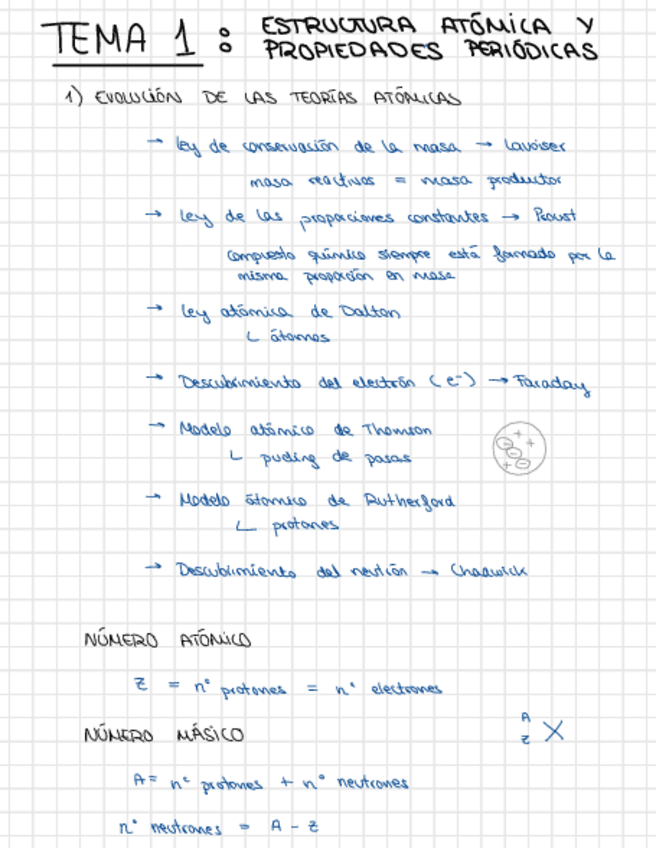 TEMA 1: ESTRUCTURA ATÓMICA Y
PROPIEDADES PERIÓDICAS
1) EVOLUCIÓN DE LAS TEORÍAS ATÓMICAS
→ Ley de conservación de la masa → Lavoiser
masa reactivos = masa productor
→ Ley de las proporciones constantes → Proust
Compuesto químico siempre está formado por la
misma proporción en masa
→ Ley atómica de Dalton
└ átomos
→ Descubrimiento del electrón (e⁻) → Faraday
→ Modelo atómico de Thomson
└ puding de pasas
+ + - - + -
→ Modelo átomico de Rutherford
└ protones
→ Descubrimiento del neutrón → Chadwick
NÚMERO ATÓMICO
Z = nº protones = nº electrones
NÚMERO MÁSICO
A
Z X
A = nº protones + nº neutrones
nº neutrones = A - Z